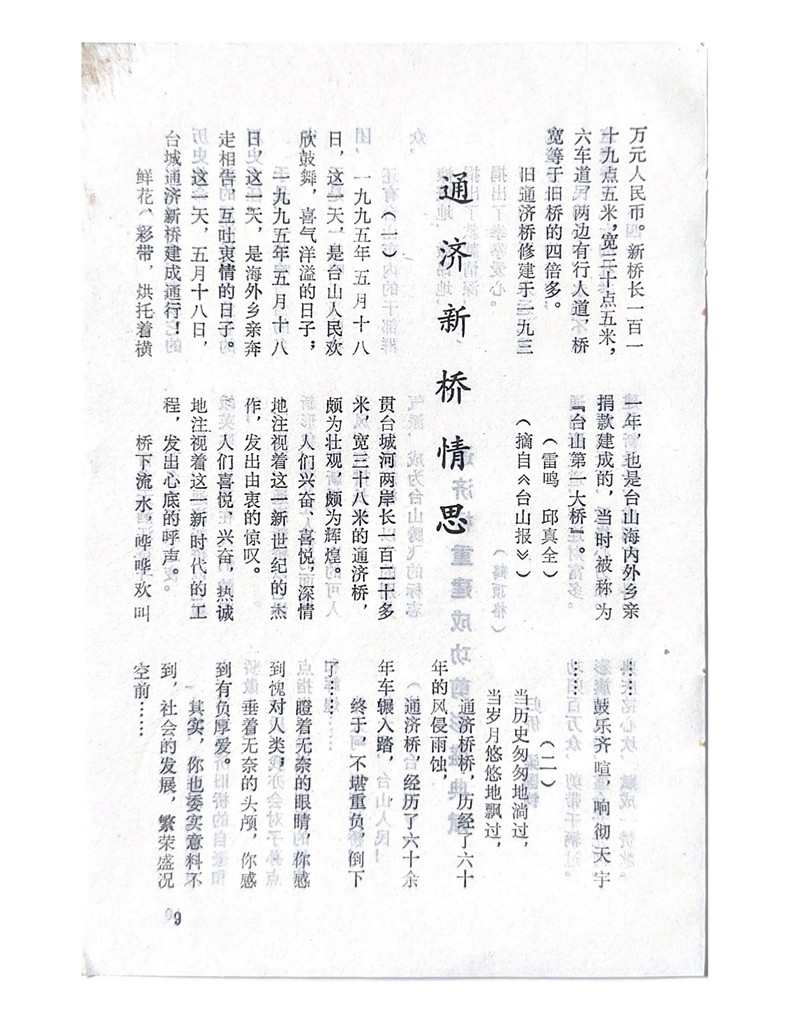 万元人民币。新桥长一百一
十九点五米,宽三十点五米,
六车道,两边有行人道,桥
宽等于旧桥的四倍多。
旧通济桥修建于一九三
一年,也是台山海内外乡亲
捐款建成的,当时被称为
“台山第一大桥”。
(雷鸣 邱真全)
(摘自《台山报》)
通济新桥情思
(一)
一九九五年五月十八
日,这一天,是台山人民欢
欣鼓舞,喜气洋溢的日子;
一九九五年五月十八
日这一天,是海外乡亲奔
走相告,互吐衷情的日子。
这一天,五月十八日,
台城通济新桥建成通行!
鲜花、彩带,烘托着横
贯台城河两岸长一百二十多
米,宽三十八米的通济桥,
颇为壮观,颇为辉煌。
人们兴奋、喜悦,深情
地注视着这一新世纪的杰
作,发出由衷的惊叹。
人们喜悦、兴奋,热诚
地注视着这一新时代的工
程,发出心底的呼声。
桥下流水,哗哗欢叫
……
鼓乐齐喧,响彻天宇
……
(二)
当历史匆匆地淌过,
当岁月悠悠地飘过,
通济桥桥,历经了六十
年的风侵雨蚀,
通济桥 经历了六十余
年车辗人踏,
终于,不堪重负,倒下
了……
瞪着无奈的眼睛,你感
到愧对人类,
垂着无奈的头颅,你感
到有负厚爱。
其实,你也委实意料不
到,社会的发展,繁荣盛况
空前……
9